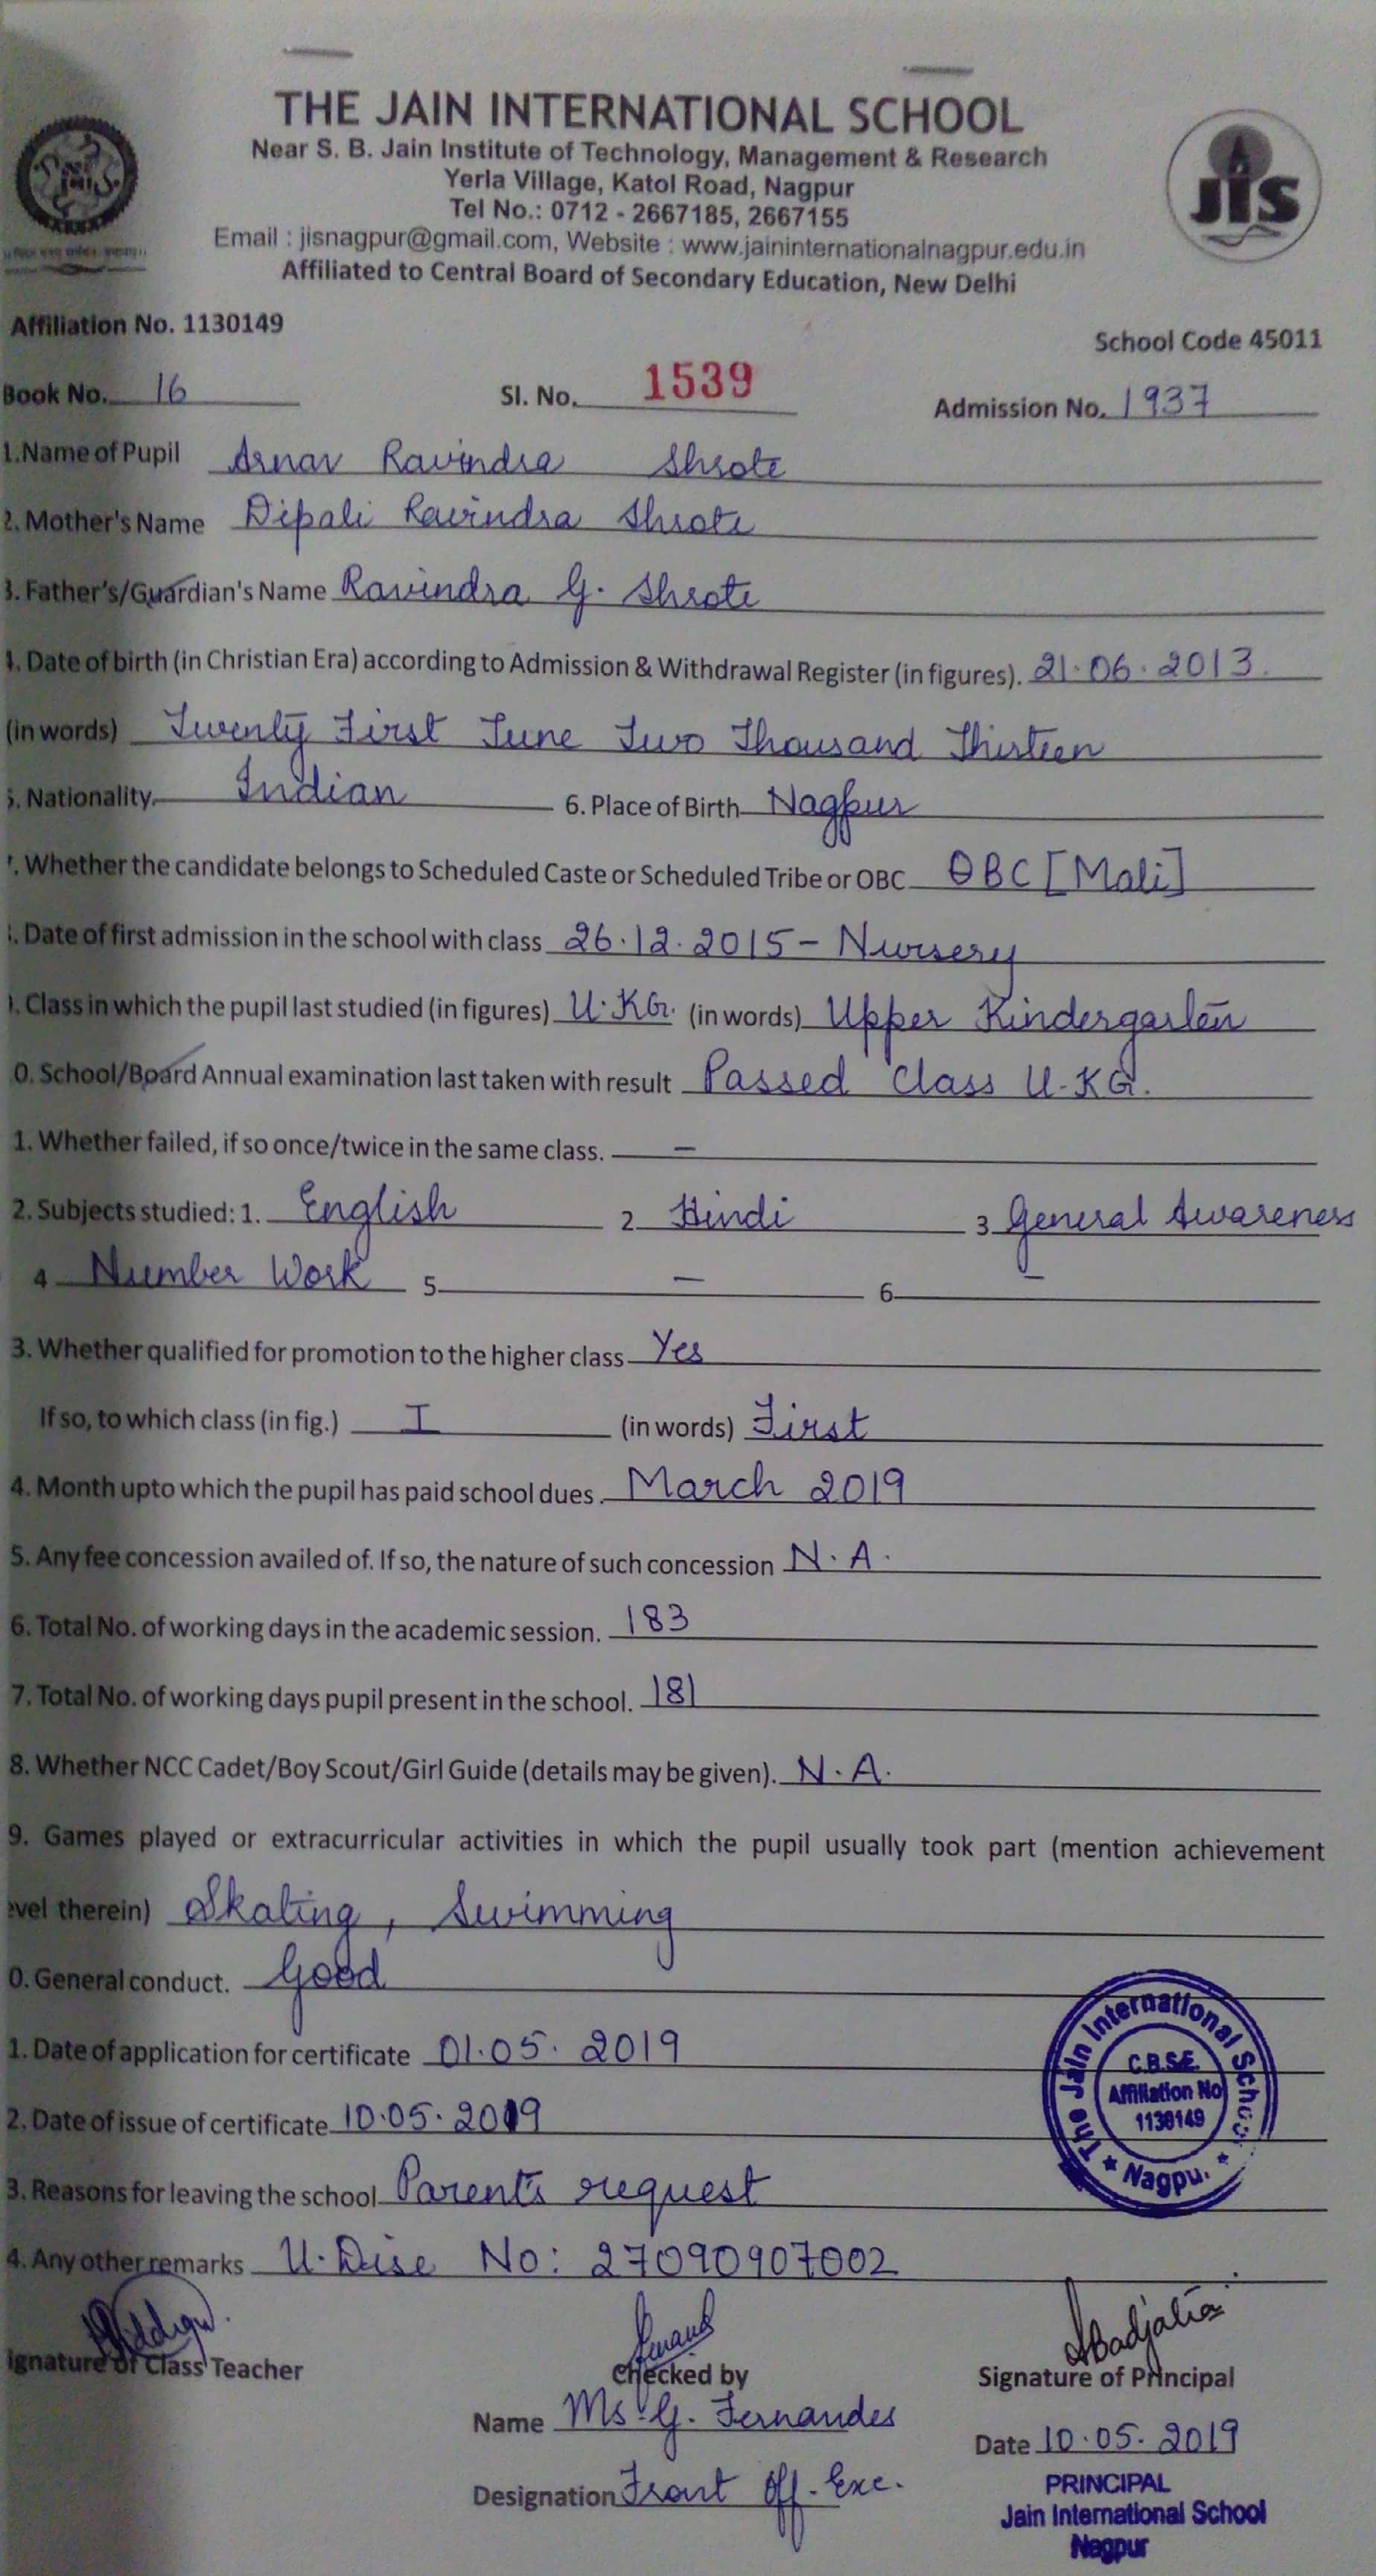 THE JAIN INTERNATIONAL SCHOOL
Near S. B. Jain Institute of Technology, Management & Research
Yerla Village, Katol Road, Nagpur
Tel No.: 0712 - 2667185, 2667155
Email : jisnagpur@gmail.com, Website : www.jaininternationalnagpur.edu.in
Affiliated to Central Board of Secondary Education, New Delhi
JIS
Affiliation No. 1130149
School Code 45011
Book No. 16 Sl. No. 1539 Admission No. 1937
1.Name of Pupil Arnav Ravindra Shrote
2. Mother's Name Dipali Ravindra Shrote
3. Father's/Guardian's Name Ravindra G. Shrote
4. Date of birth (in Christian Era) according to Admission & Withdrawal Register (in figures). 21.06.2013.
(in words) Twenty First June Two Thousand Thirteen
5. Nationality. Indian 6. Place of Birth Nagpur
. Whether the candidate belongs to Scheduled Caste or Scheduled Tribe or OBC OBC [Mali]
. Date of first admission in the school with class 26.12.2015 - Nursery
. Class in which the pupil last studied (in figures) U.KG. (in words) Upper Kindergarten
0. School/Board Annual examination last taken with result Passed Class U-KG.
1. Whether failed, if so once/twice in the same class. —
2. Subjects studied: 1. English 2 Hindi 3 General Awareness
4 Number Work 5 — 6 —
3. Whether qualified for promotion to the higher class Yes
If so, to which class (in fig.) I (in words) First
4. Month upto which the pupil has paid school dues. March 2019
5. Any fee concession availed of. If so, the nature of such concession N.A.
6. Total No. of working days in the academic session. 183
7. Total No. of working days pupil present in the school. 181
8. Whether NCC Cadet/Boy Scout/Girl Guide (details may be given). N.A.
9. Games played or extracurricular activities in which the pupil usually took part (mention achievement
evel therein) Skating, Swimming
0. General conduct. Good
1. Date of application for certificate 01.05.2019
2. Date of issue of certificate 10.05.2019
3. Reasons for leaving the school Parent's request
4. Any other remarks U.Dise No: 27090907002
The Jain International School
C.B.S.E.
Affiliation No
1130149
★ Nagpu. ★
ignature of Class Teacher
Checked by
Signature of Principal
Name Ms. G. Fernandes
Date 10.05.2019
Designation Front Off. Exc.
PRINCIPAL
Jain International School
Nagpur